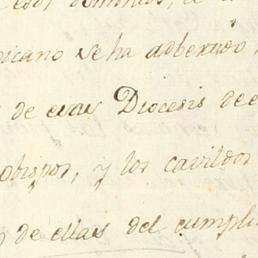 icano se ha adbertido
de esas Diocesis de
obispos, y los cavildos
de ellas del cumpli